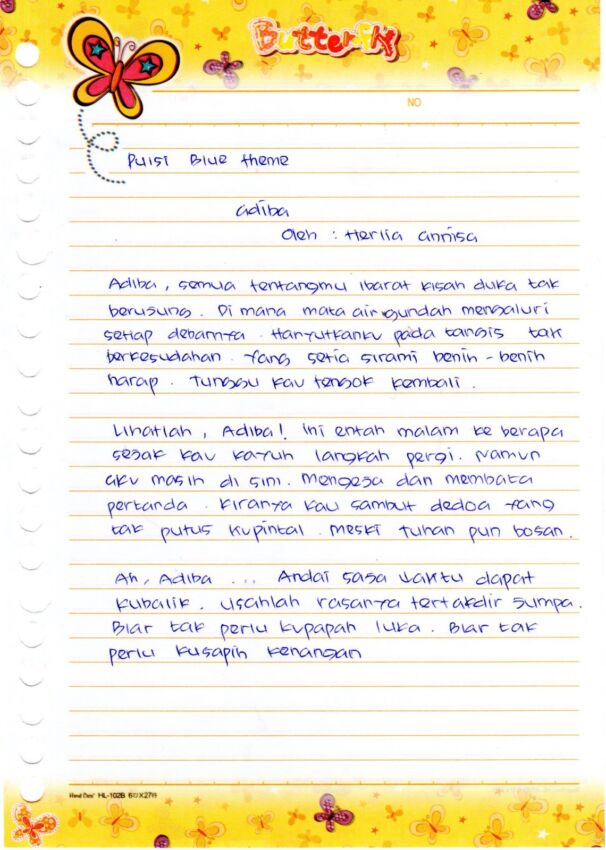 Butterfly
NO
Puisi Blue theme
Adiba
Oleh : Herlia annisa
Adiba, semua tentangmu ibarat kisah duka tak
berusung. Di mana mata air gundah mengaluri
setiap debarnya. Hanyutkanku pada tangis tak
berkesudahan. Yang setia sirami benih-benih
harap. Tunggu kau tengok kembali.
Lihatlah, Adiba! ini entah malam ke berapa
sejak kau kayuh langkah pergi. Namun
aku masih di sini. Mengeja dan membata
pertanda. Kiranya kau sambut dedoa yang
tak putus kupintal. Meski tuhan pun bosan.
Ah, Adiba ... Andai saja waktu dapat
kubalik. Usahlah rasanya tertakdir jumpa.
Biar tak perlu kupapah luka. Biar tak
perlu kusapih kenangan
HL-102B 6